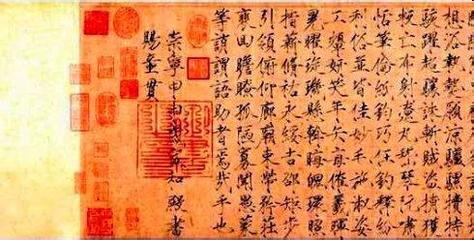 想浴執熱願涼驢騾犢特
駭躍超驤誅斬賊盜捕獲
叛亡布射遼丸嵇琴阮嘯
恬筆倫紙鈞巧任釣釋紛
利俗並皆佳妙毛施淑姿
工顰妍笑年矢每催羲暉
晃曜璇璣懸斡晦魄環照
指薪修祜永綏吉劭矩步
引領俯仰廊廟束帶矜莊
徘徊瞻眺孤陋寡聞愚蒙
等誚謂語助者焉哉乎也
崇寧甲申歲宣和殿書
賜童貫